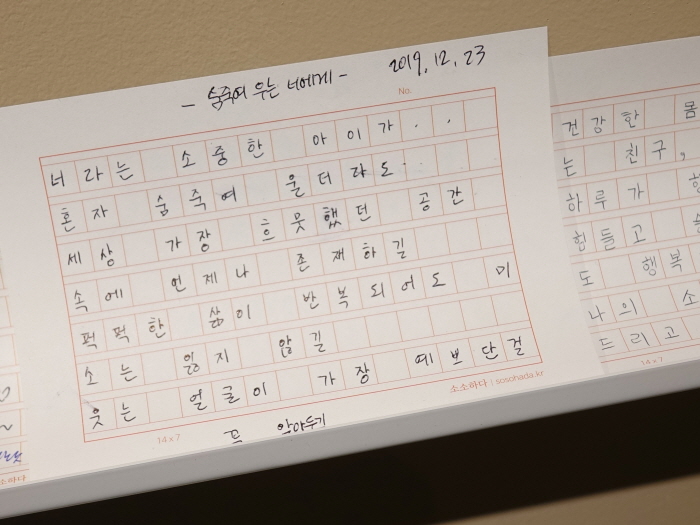 - 숨죽여 우는 너에게 - 2019. 12. 23
No.
너라는 소중한 아이가..
혼자 숨죽여 울더라도.
세상 가장 흐뭇했던 공간
속에 언제나 존재하길
퍽퍽한 삶이 반복되어도 미
소는 잃지 않길
웃는 얼굴이 가장 예쁘단걸
14 x 7 소소하다 | sosohada.kr
꼬 안아두기
건강한 몸
는 친구,
하루가
힘들고
도 행복
나의 소
드리고
14 x 7